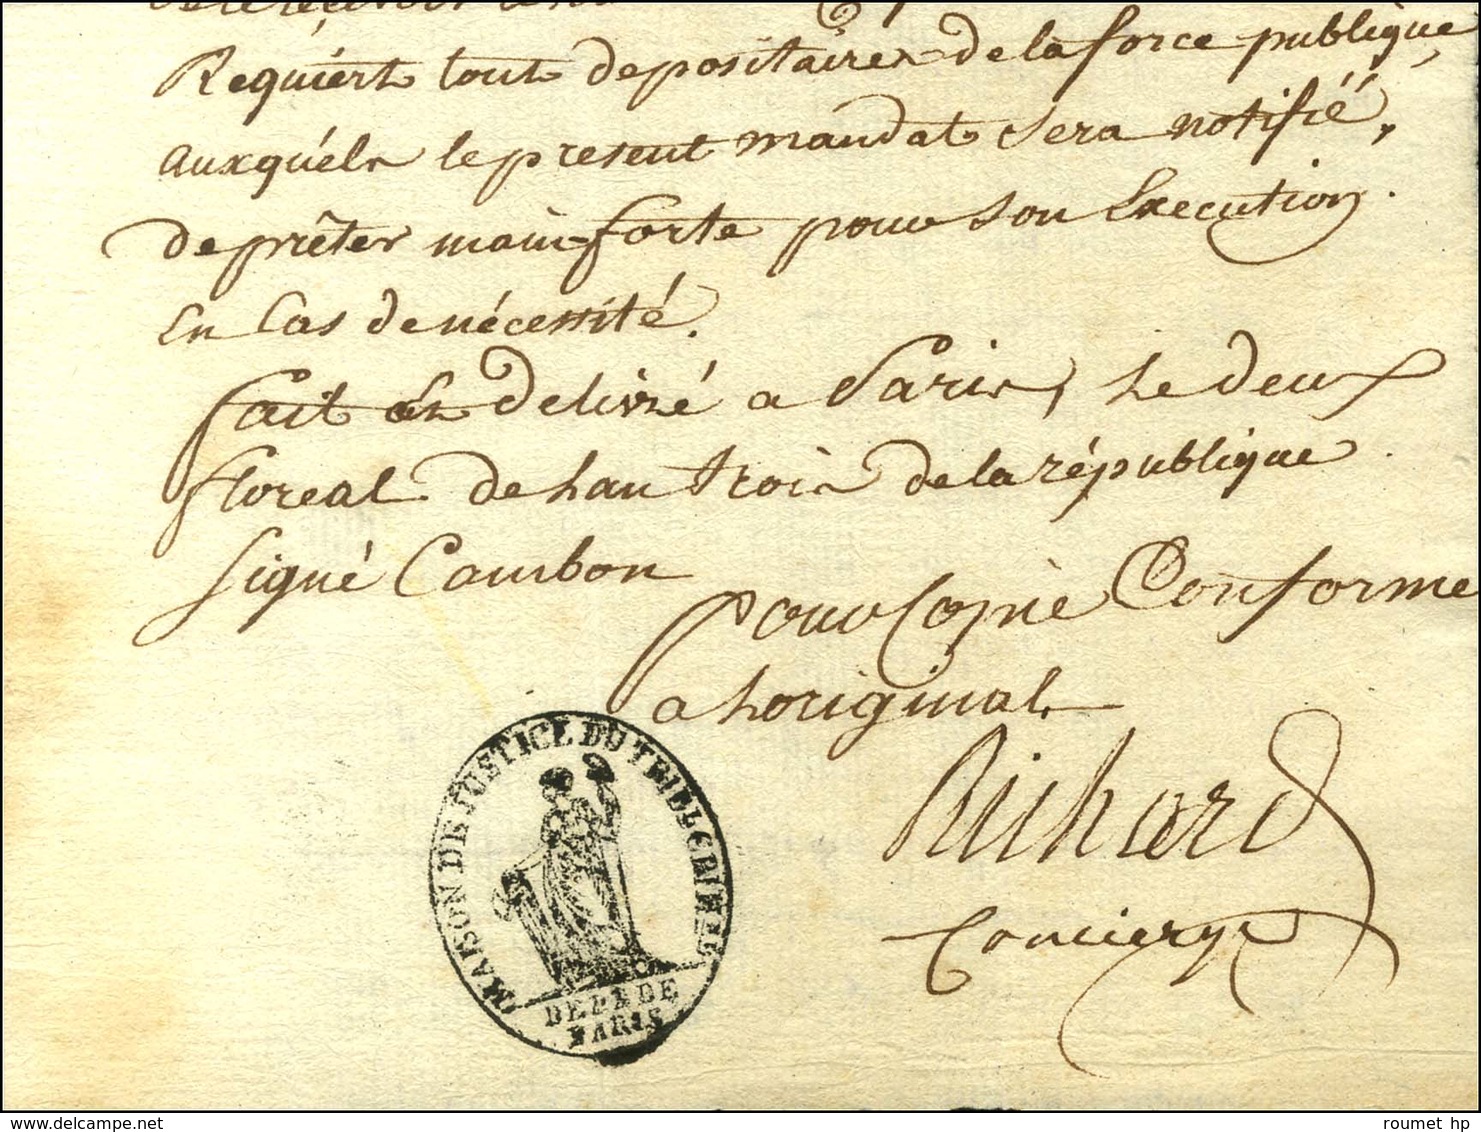 Requiert tout depositaires de la force publique,
auxquéls le present mandat sera notifié,
de prêter main-forte pour son Execution.
En Cas de nécessité.
fait et delivré a Paris, le deux
floreal de Lan trois de la république
signé Cambon
pour Copie Conforme
a Loriginal.
Richard
Concierge
MAISON DE JUSTICE DU TRIB. CRIMEL
DEP. DE
PARIS
roumet hp